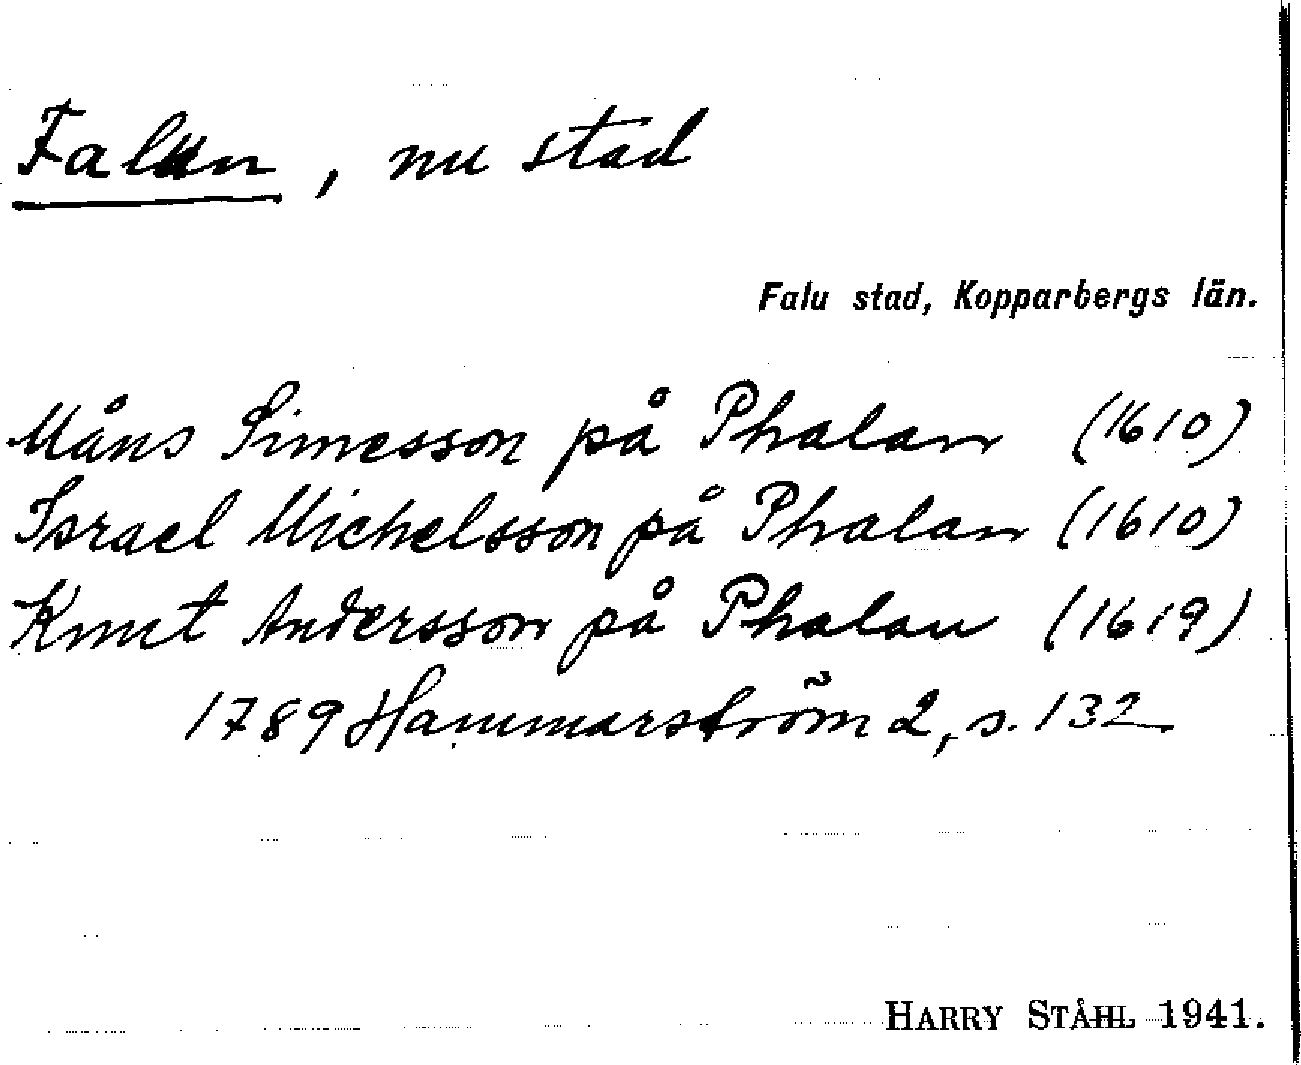 Falun, nu stad
Falu stad, Kopparbergs län.
Måns Simesson på Phalan (1610)
Israel Michelsson på Phalan (1610)
Knut Andersson på Phalan (1619)
1789 Hammarström 2, s. 132
HARRY STÅHL 1941.